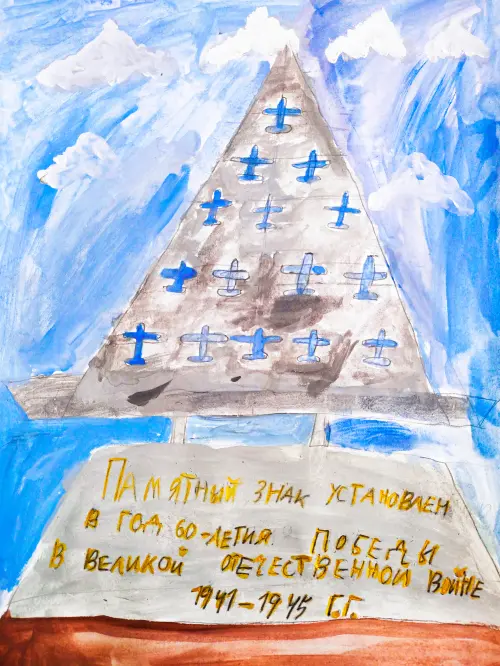 ПАМЯТНЫЙ ЗНАК УСТАНОВЛЕН
В ГОД 60-ЛЕТИЯ ПОБЕДЫ
В ВЕЛИКОЙ ОТЕЧЕСТВЕННОЙ ВОЙНЕ
1941-1945 Г.Г.